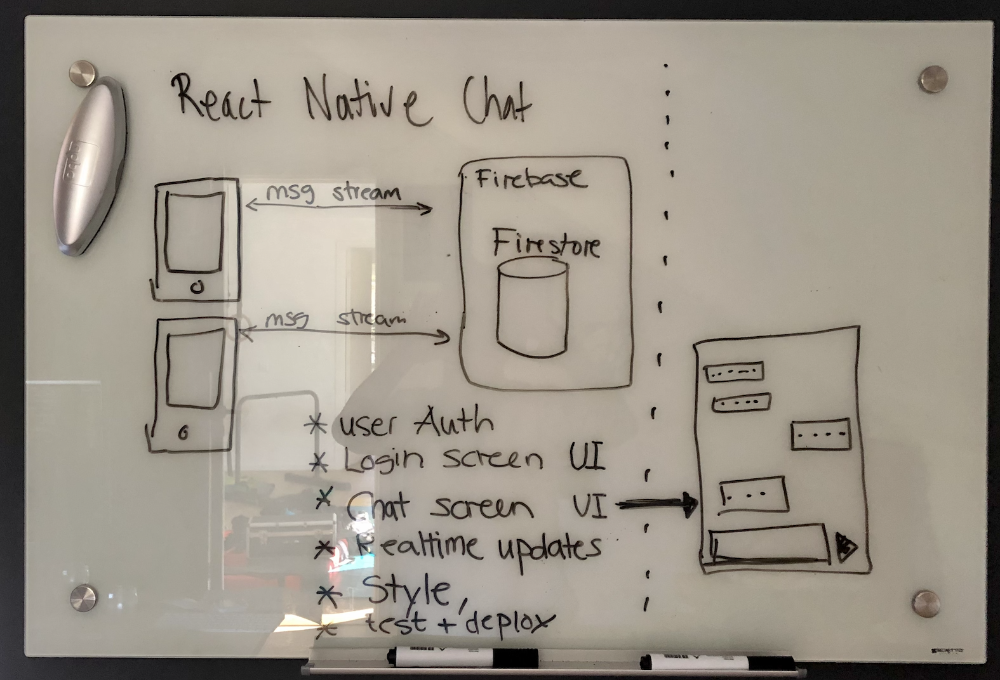 React Native Chat
msg stream
Firebase
Firestore
msg stream
* user Auth
* Login screen UI
* Chat screen UI
* Realtime updates
* Style,
* test + deploy